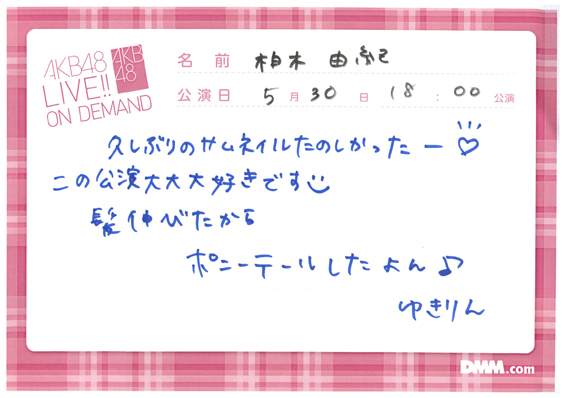 AKB48
LIVE!!
ON DEMAND
AKB
48
名前 柏木 由紀
公演日 5月30日 18:00公演
久しぶりのサムネイルたのしかったー♡
この公演大大大好きです
髪伸びたから
ポニーテールしたよん♪
ゆきりん
DMM.com